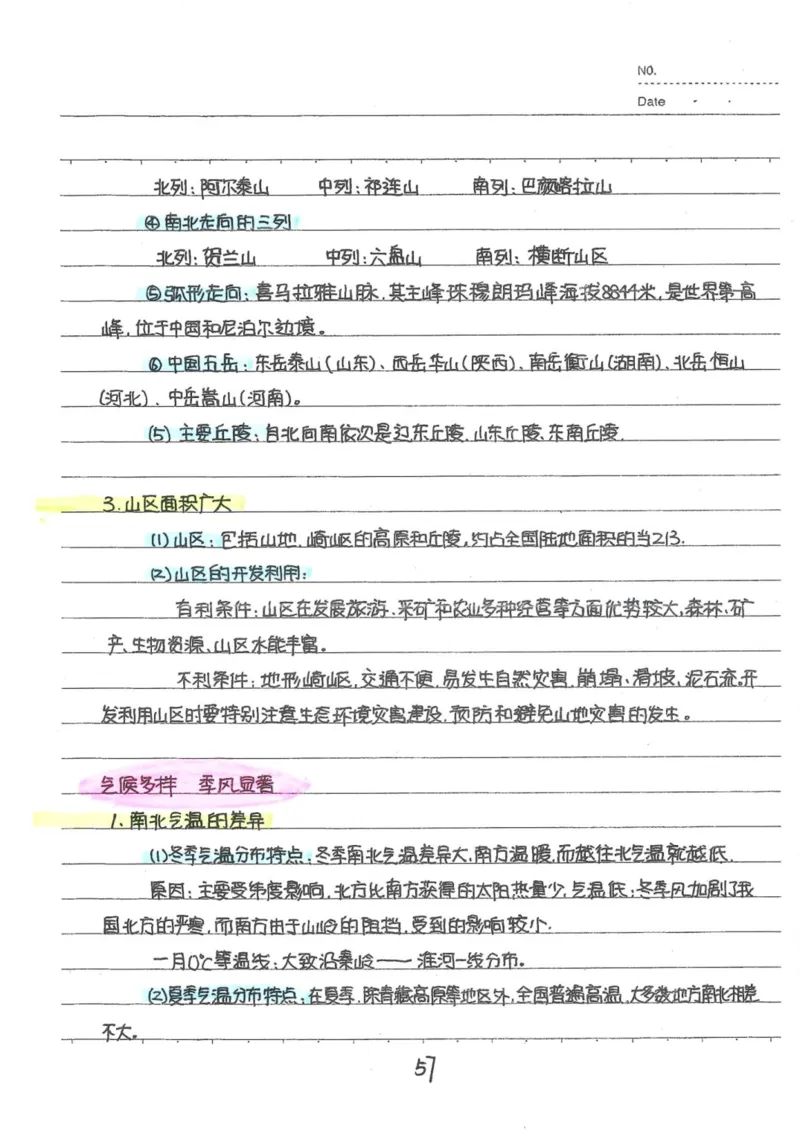 NO.
Date
北列：阿尔泰山 中列：祁连山 南列：巴颜喀拉山
④南北走向的三列
北列：贺兰山 中列：六盘山 南列：横断山区
⑤弧形走向：喜马拉雅山脉，其主峰珠穆朗玛峰海拔8844米，是世界第一高
峰，位于中国和尼泊尔边境。
⑥中国五岳：东岳泰山（山东）、西岳华山（陕西）、南岳衡山（湖南）、北岳恒山
（河北）、中岳嵩山（河南）。
(5) 主要丘陵：自北向南依次是辽东丘陵、山东丘陵、东南丘陵.
3.山区面积广大
(1)山区：包括山地、崎岖的高原和丘陵，约占全国陆地面积的当2/3.
(2)山区的开发利用：
有利条件：山区在发展旅游、采矿和农业多种经营等方面优势较大，森林、矿
产、生物资源、山区水能丰富。
不利条件：地形崎岖，交通不便，易发生自然灾害，崩塌、滑坡、泥石流。开
发利用山区时要特别注意生态环境灾害建设，预防和避免山地灾害的发生。
气候多样 季风显著
1、南北气温的差异
(1)冬季气温分布特点：冬季南北气温差异大，南方温暖，而越往北气温就越低.
原因：主要受纬度影响，北方比南方获得的太阳热量少，气温低；冬季风加剧了我
国北方的严寒，而南方由于山岭的阻挡，受到的影响较小.
一月0℃等温线：大致沿秦岭——淮河一线分布。
(2)夏季气温分布特点：在夏季，除青藏高原等地区外，全国普遍高温，大多数地方南北相差
不大。
57